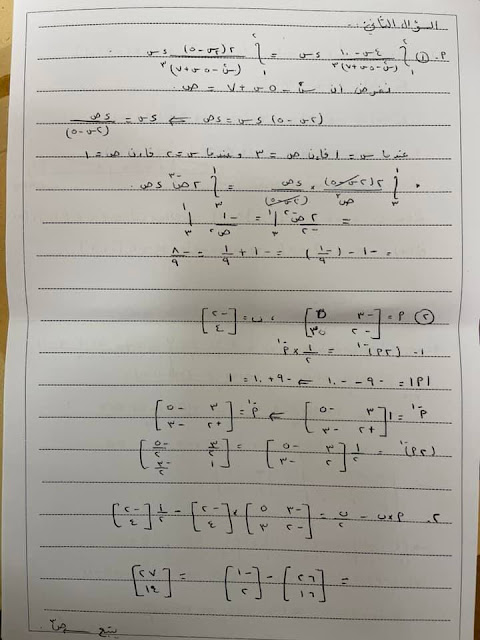 السؤال الثاني :
P. ① ∫₁² (٤س - ١٠)/(س² - ٥س + ٧)³ ءس = ∫₁² ٢(٢س - ٥)/(س² - ٥س + ٧)³ ءس
نفرض أن س² - ٥س + ٧ = ص
(٢س - ٥) ءس = ءص ⇐ ءس = ءص/(٢س - ٥)
عندما س = ١ فإن ص = ٣ وعندما س = ٢ فإن ص = ١
∫₃¹ ٢(٢س - ٥)/ص³ × ءص/(٢س - ٥) = ∫₃¹ ٢ص⁻³ ءص
= ٢ص⁻²/-٢ |₃¹ = -١/ص² |₃¹
= -١ - (-١/٩) = -١ + ١/٩ = -٨/٩
② P = [-٣ ٥ ; -٢ ٣] ، ب = [-٢ ; ٤]
١- (٢P)⁻¹ = ١/٢ × P⁻¹
|P| = -٩ - -١٠ ⇐ -٩ + ١٠ = ١
P⁻¹ = ١/١ [٣ -٥ ; +٢ -٣] ⇐ P⁻¹ = [٣ -٥ ; +٢ -٣]
(٢P)⁻¹ = ١/٢ [٣ -٥ ; ٢ -٣] = [٣/٢ -٥/٢ ; ١ -٣/٢]
٢. P×ب - ب/٢ = [-٣ ٥ ; -٢ ٣] × [-٢ ; ٤] - ١/٢ [-٢ ; ٤]
= [٢٦ ; ١٦] - [-١ ; ٢] = [٢٧ ; ١٤]
يتبع